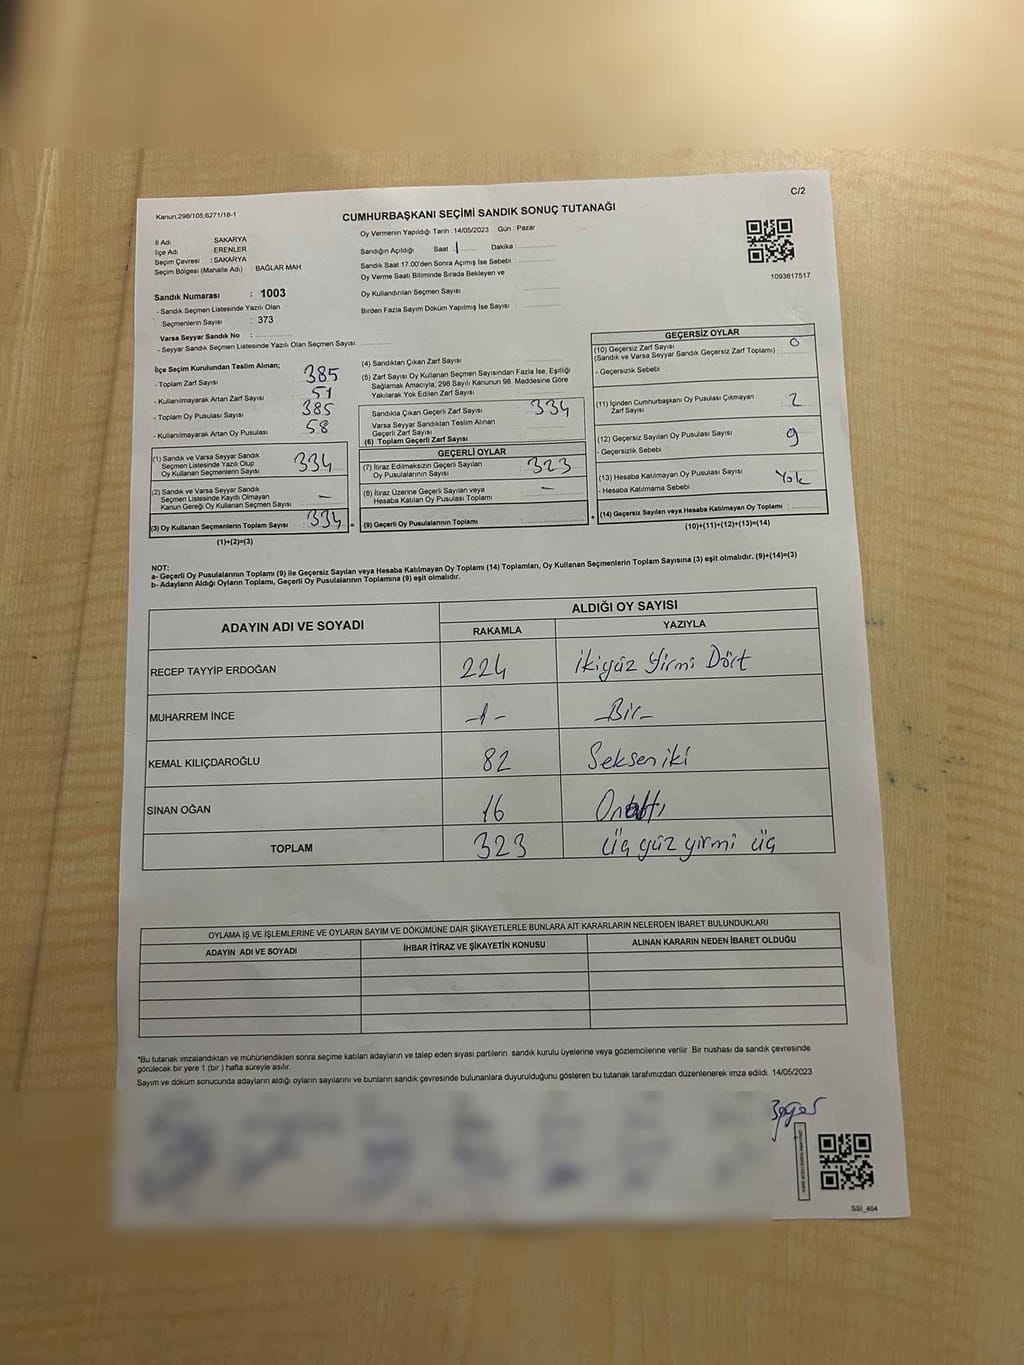 C/2
Kanun,298/105,6271/18-1
CUMHURBAŞKANI SEÇİMİ SANDIK SONUÇ TUTANAĞI
İl Adı SAKARYA
İlçe Adı : ERENLER
Seçim Çevresi : SAKARYA
Seçim Bölgesi (Mahalle Adı) : BAĞLAR MAH
Sandık Numarası : 1003
- Sandık Seçmen Listesinde Yazılı Olan
Seçmenlerin Sayısı : 373
Varsa Seyyar Sandık No :
- Seyyar Sandık Seçmen Listesinde Yazılı Olan Seçmen Sayısı
Oy Vermenin Yapıldığı Tarih :14/05/2023 Gün : Pazar
Sandığın Açıldığı Saat Dakika :
Sandık Saat 17.00'den Sonra Açımış İse Sebebi :
Oy Verme Saati Bitiminde Sırada Bekleyen ve
Oy Kullandırılan Seçmen Sayısı :
Birden Fazla Sayım Döküm Yapılmış İse Sayısı :
1093817517
İlçe Seçim Kurulundan Teslim Alınan;
- Toplam Zarf Sayısı : 385
- Kullanılmayarak Artan Zarf Sayısı : 51
- Toplam Oy Pusulası Sayısı : 385
- Kullanılmayarak Artan Oy Pusulası : 58
(1) Sandık ve Varsa Seyyar Sandık
Seçmen Listesinde Yazılı Olup
Oy Kullanan Seçmenlerin Sayısı 334
(2) Sandık ve Varsa Seyyar Sandık
Seçmen Listesinde Kayıtlı Olmayan
Kanun Gereği Oy Kullanan Seçmen Sayısı –
(3) Oy Kullanan Seçmenlerin Toplam Sayısı : 334 =
(1)+(2)=(3)
(4) Sandıktan Çıkan Zarf Sayısı :
(5) Zarf Sayısı Oy Kullanan Seçmen Sayısından Fazla İse, Eşitliği
Sağlamak Amacıyla, 298 Sayılı Kanunun 98. Maddesine Göre
Yakılarak Yok Edilen Zarf Sayısı :
Sandıkta Çıkan Geçerli Zarf Sayısı : 334
Varsa Seyyar Sandıktan Teslim Alınan
Geçerli Zarf Sayısı :
(6) Toplam Geçerli Zarf Sayısı :
GEÇERLİ OYLAR
(7) İtiraz Edilmeksizin Geçerli Sayılan
Oy Pusulalarının Sayısı : 323
(8) İtiraz Üzerine Geçerli Sayılan veya
Hesaba Katılan Oy Pusulası Toplamı : –
(9) Geçerli Oy Pusulalarının Toplamı : +
GEÇERSİZ OYLAR
(10) Geçersiz Zarf Sayısı : 0
(Sandık ve Varsa Seyyar Sandık Geçersiz Zarf Toplamı)
- Geçersizlik Sebebi :
(11) İçinden Cumhurbaşkanı Oy Pusulası Çıkmayan
Zarf Sayısı : 2
(12) Geçersiz Sayılan Oy Pusulası Sayısı : 9
- Geçersizlik Sebebi :
(13) Hesaba Katılmayan Oy Pusulası Sayısı : Yok
- Hesaba Katılmama Sebebi :
(14) Geçersiz Sayılan veya Hesaba Katılmayan Oy Toplamı :
(10)+(11)+(12)+(13)=(14)
NOT:
a- Geçerli Oy Pusulalarının Toplamı (9) ile Geçersiz Sayılan veya Hesaba Katılmayan Oy Toplamı (14) Toplamları, Oy Kullanan Seçmenlerin Toplam Sayısına (3) eşit olmalıdır. (9)+(14)=(3)
b- Adayların Aldığı Oyların Toplamı, Geçerli Oy Pusulalarının Toplamına (9) eşit olmalıdır.
ADAYIN ADI VE SOYADI
ALDIĞI OY SAYISI
RAKAMLA YAZIYLA
RECEP TAYYİP ERDOĞAN 224 ikiyüz Yirmi Dört
MUHARREM İNCE -1- -Bir-
KEMAL KILIÇDAROĞLU 82 Seksen iki
SİNAN OĞAN 16 Onaltı
TOPLAM 323 üç yüz yirmi üç
OYLAMA İŞ VE İŞLEMLERİNE VE OYLARIN SAYIM VE DÖKÜMÜNE DAİR ŞİKAYETLERLE BUNLARA AİT KARARLARIN NELERDEN İBARET BULUNDUKLARI
ADAYIN ADI VE SOYADI İHBAR İTİRAZ VE ŞİKAYETİN KONUSU ALINAN KARARIN NEDEN İBARET OLDUĞU
*Bu tutanak imzalandıktan ve mühürlendikten sonra seçime katılan adayların ve talep eden siyasi partilerin sandık kurulu üyelerine veya gözlemcilerine verilir .Bir nüshası da sandık çevresinde
görülecek bir yere 1 (bir ) hafta süreyle asılır.
Sayım ve döküm sonucunda adayların aldığı oyların sayılarını ve bunların sandık çevresinde bulunanlara duyurulduğunu gösteren bu tutanak tarafımızdan düzenlenerek imza edildi. 14/05/2023
SSI_404